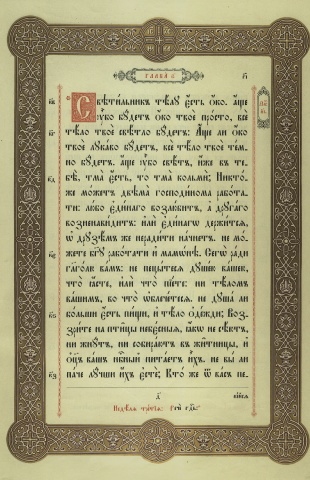 ГЛАВА ѕ҃
Свѣти́льникъ тѣ́лу є҆́сть ѻ҆́ко. а҆́ще
ᲂу҆̀бо бу́детъ ѻ҆́ко твоѐ про́сто, всѐ
тѣ́ло твоѐ свѣ́тло бу́детъ: А҆́ще ли ѻ҆́ко
твоѐ лука́во бу́детъ, всѐ тѣ́ло твоѐ те́м-
но бу́детъ. а҆́ще ᲂу҆̀бо свѣ́тъ, и҆́же въ те-
бѣ̀, тма̀ є҆́сть, то тма̀ кольмѝ; Никто́-
же мо́жетъ двѣма̀ господи́нома рабо́та-
ти: лю́бо є҆ди́наго возлю́битъ, а҆ друга́го
возненави́дитъ: и҆лѝ є҆ди́нагѡ держи́тсѧ,
ѡ҆ друзѣ́мъ же неради́ти на́чнетъ. не мо́-
жете бг҃у рабо́тати и҆ мамѡ́нѣ. Сегѡ̀ ра́ди
гл҃го́лю ва́мъ: не пецы́тесѧ душе́ю ва́шею,
что̀ ꙗ҆́сте, и҆лѝ что̀ пїе́те: ни тѣ́ломъ
ва́шимъ, во что̀ ѡ҆блече́тесѧ. не душа́ ли
бо́льши є҆́сть пи́щи, и҆ тѣ́ло ѻ҆де́жди; Воз-
зри́те на пти́цы небє́сныѧ, ꙗ҆́кѡ не сѣ́ютъ,
ни жну́тъ, ни собира́ютъ въ жи́тницы, и҆
ѻ҆ц҃ъ ва́шъ нбⷭ҇ный пита́етъ и҆̀хъ. не вы́ ли
па́че лу́чши и҆́хъ є҆стѐ; Кто́ же ѿ ва́съ пе-
Недѣ́лѧ тре́тїѧ.